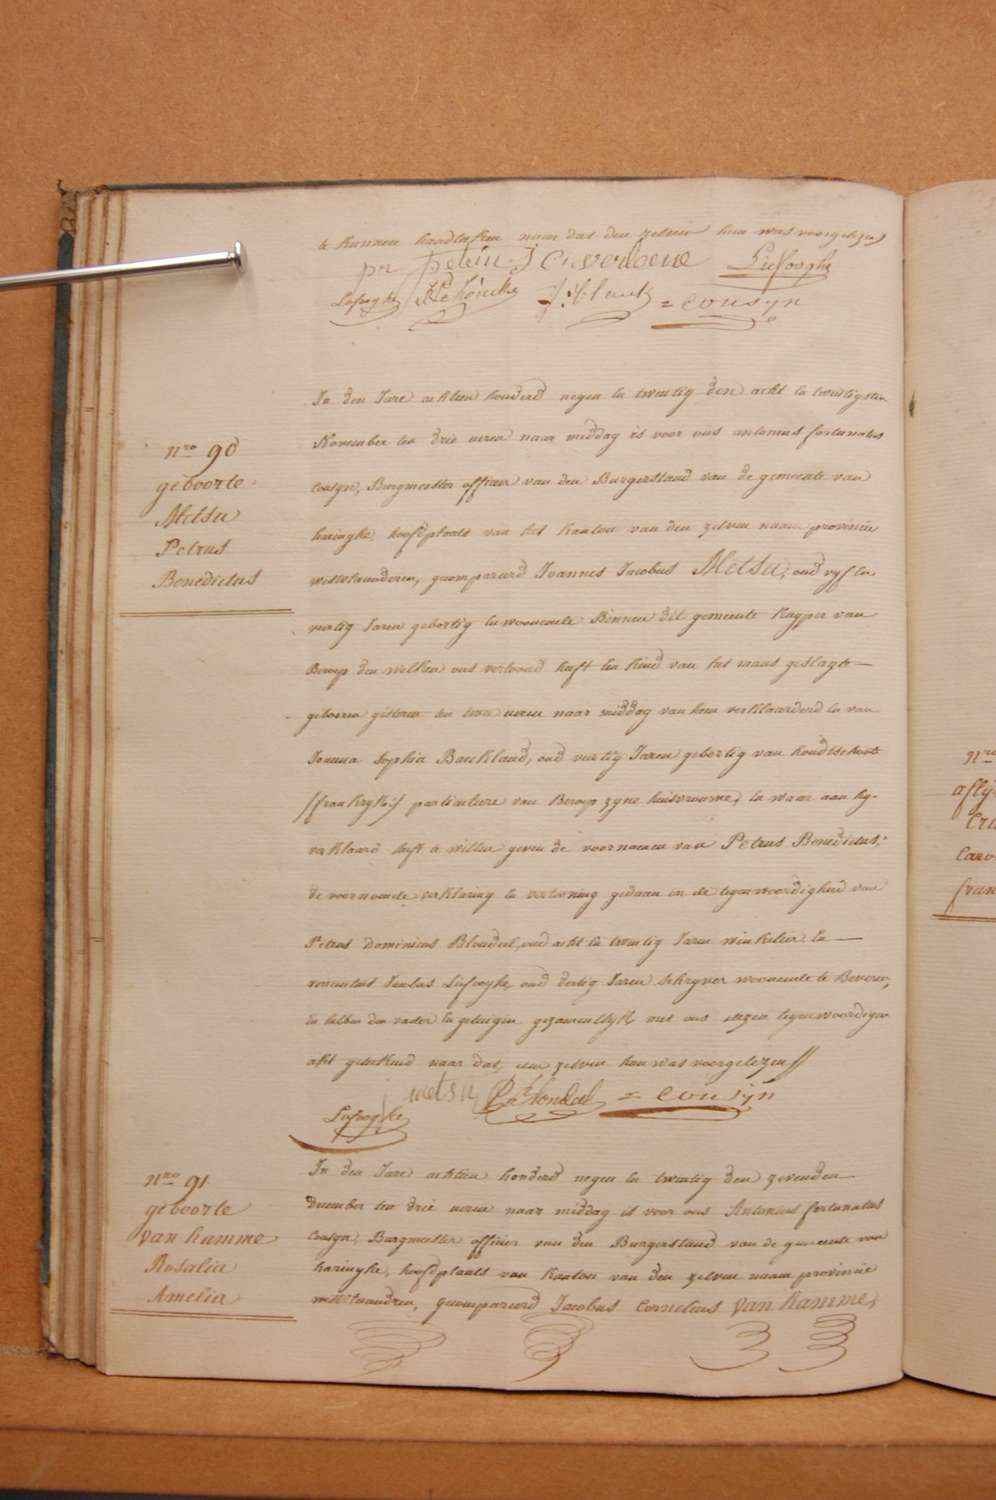 te kunnen handteeken naar dat den zelven hun was voorgelezen
Liefooghe
Liefooghe = Cousyn
nro 90
geboorte
Metsu
Petrus
Benedictus
In den Jare achtien honderd negen en twentig den acht en twentigsten
November ten drie uren naer middag is voor ons antonius fortunatus
Cousyn, Burgmeester officier van den Burgerstand van de gemeente van
haringhe hoofdplaats van het kanton van den zelven naam provincie
westvlaanderen, gecompareerd Joannes Jacobus Metsu, oud vyf en
veertig Jaren gebortig en woonende Binnen dit gemeente kuyper van
Beroep den welken ons vertoond heeft een kind van het mans geslagte
geboren gisteren ten twee uren naar middag van hem verklaarderd en van
Joanna Sophia Baeckland, oud veertig Jaren gebortig van hondtschoote
/frankryk:/ particuliere van Beroep zyne huisvrouwe, en waar aan hy
verklaard heeft te willen geven de voornamen van Petrus Benedictus,
de voornoemde verklaring en vertooning gedaan in de tegenwoordigheid van
Petrus Dominicus Blondeel, oud acht en twentig Jaren winkelier en
Jacobus Liefooghe, oud dertig Jaren schryver woonende te Beveren,
en hebben den vader en getuigen gezamentlyk met ons dezen tegenwoordigen
akt geteekend naar dat, den zelven hun was voorgelezen //
j metsu P. Blondeel = Cousyn
Liefooghe
nro 91
geboorte
van hamme
Rosalia
Amelia
In den Jare achtien honderd negen en twentig den zevenden
December ten drie uren naar middag is voor ons Antonius fortunatus
Cousyn, Burgmeester officier van den Burgerstand van de gemeente van
haringhe, hoofdplaats van kanton van den zelven naam provincie
westvlaandren, gecompareerd Jacobus Cornelius van hamme,
nro